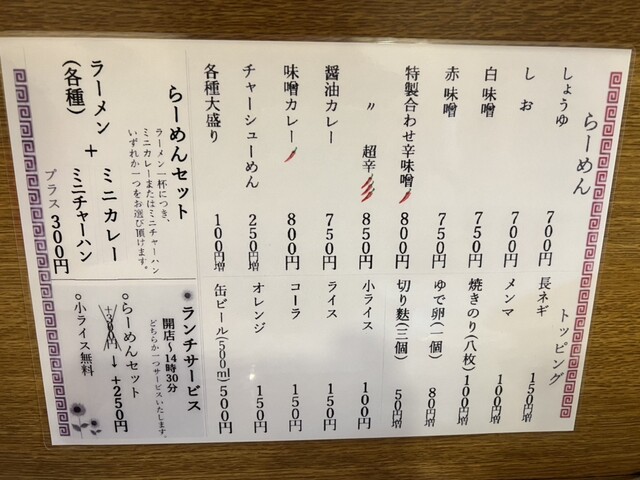 らーめん
しょうゆ 700円
しお 700円
白味噌 750円
赤味噌 750円
特製合わせ辛味噌 800円
〃 超辛 850円
醤油カレー 750円
味噌カレー 800円
チャーシューめん 250円増
各種大盛り 100円増
トッピング
長ネギ 150円増
メンマ 100円増
焼きのり(八枚) 100円増
ゆで卵(一個) 80円増
切り麩(三個) 50円増
小ライス 100円
ライス 150円
コーラ 150円
オレンジ 150円
缶ビール(500ml) 500円
らーめんセット
ラーメン一杯につき、
ミニカレーまたはミニチャーハン
いずれか一つをお選び頂けます。
ラーメン + ミニカレー
(各種) ミニチャーハン
プラス 300円
ランチサービス
開店〜14時30分
どちらか一つサービスいたします。
らーめんセット
+300円 → +250円
小ライス無料